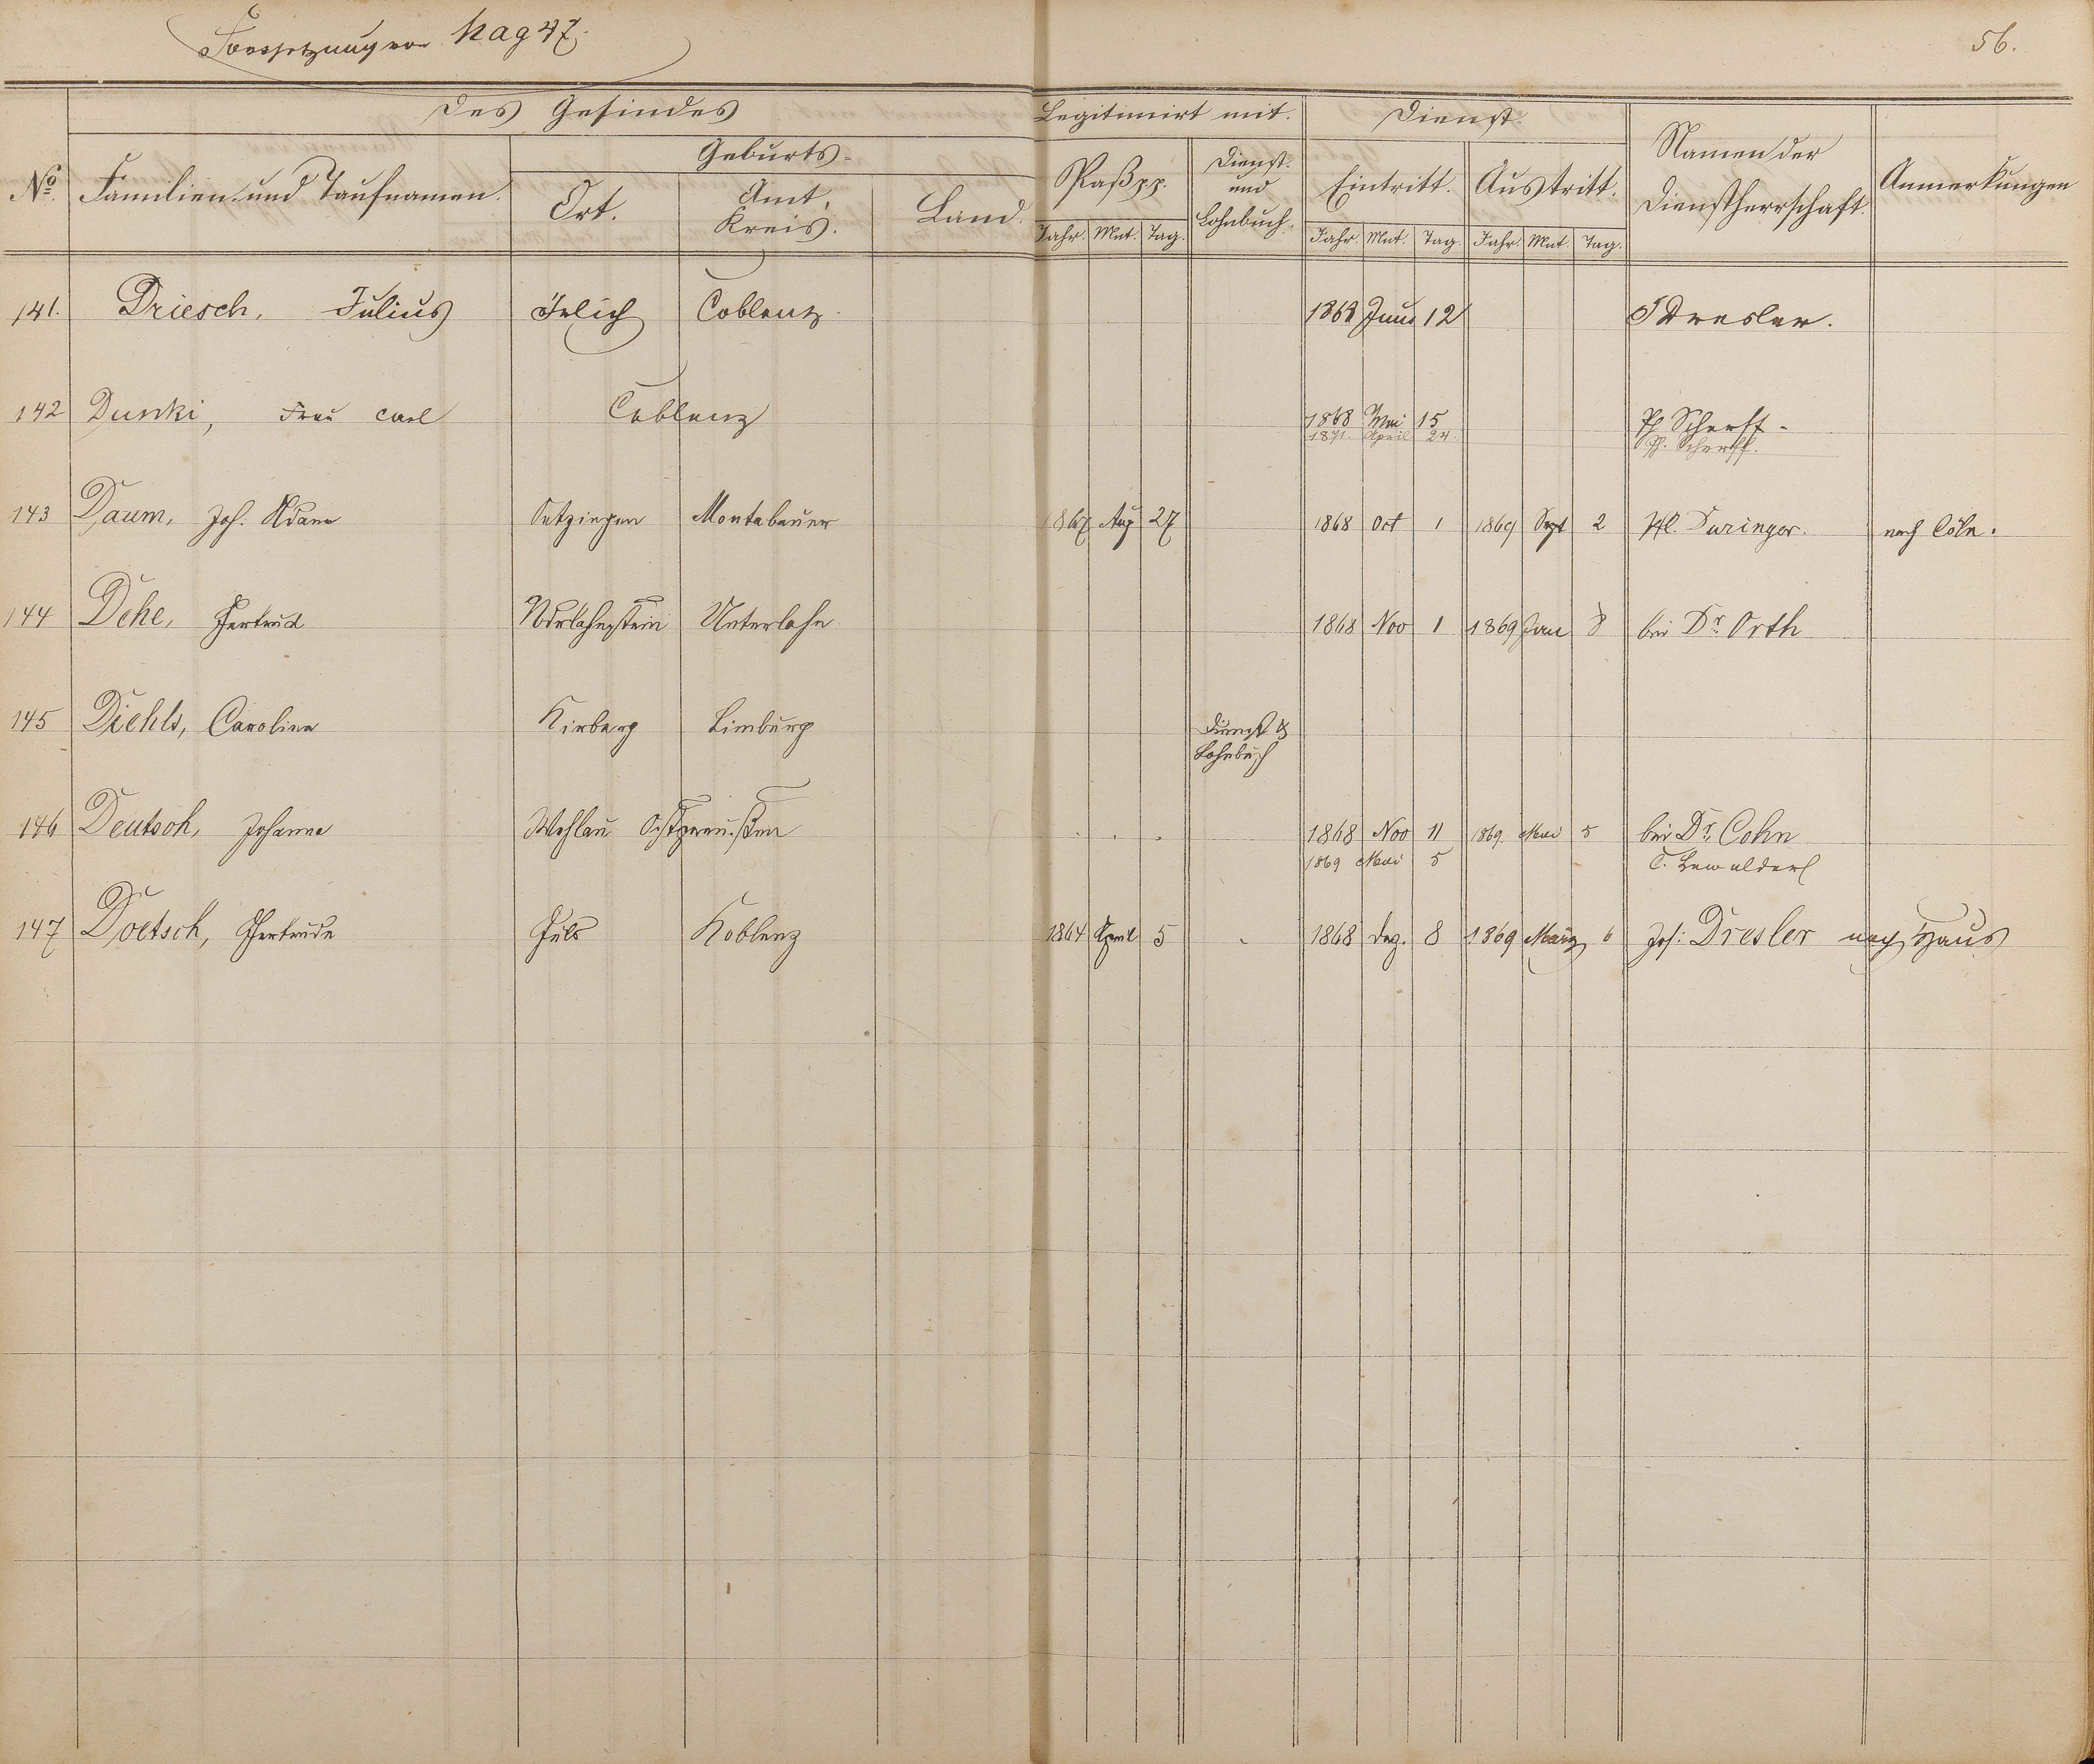 Fortsetzung von pag 47.
56.
Des Gesindes
Legitimirt mit.
Dienst.
No. Familien- und Taufnamen.
Geburts-
Ort.
Amt, Kreis.
Land.
Paß pp.
Dienst- und Lohnbuch.
Eintritt. Austritt.
Namen der Dienstherrschaft.
Anmerkungen
Jahr. Mnt. Tag. Jahr. Mnt. Tag. Jahr. Mnt. Tag.
141. Driesch, Julius Irlich Coblenz 1868 Juni 12 J Dresler.
142 Dunki, Frau Carl Coblenz 1868 Mai 15 Ph Scherff.
1871. April 24. Ph. Scherff.
143 Daum, Joh. Adam Montabauer 1867 Aug 27 1868 Oct 1 1869 Sept 2 Duringer. nach Cöln.
144 Dehe, Gertrud Oberlahnstein Unterlahn 1868 Nov 1 1869 Jan 8 bei Dr. Orth
145 Diehls, Carolina Kirberg Limburg Dienst &
Lohnbuch
146 Deutsch, Johanna Wehlau Ostpreußen 1868 Nov 11 1869. Mai 5 bei Dr. Cohn
1869 Mai 5 C. Lewalder
147 Doetsch, Gertrude Güls Koblenz 1864 April 5 1868 Dez. 8 1869 März 6 Jos: Dresler nach Haus